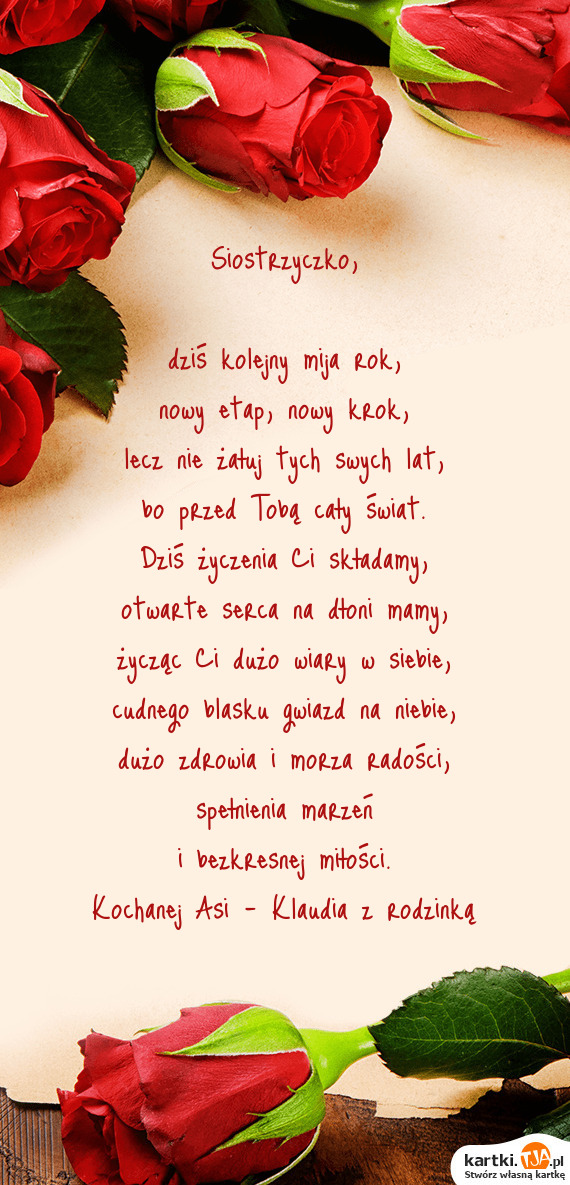 Siostrzyczko,
dziś kolejny mija rok,
nowy etap, nowy krok,
lecz nie żałuj tych swych lat,
bo przed Tobą cały świat.
Dziś życzenia Ci składamy,
otwarte serca na dłoni mamy,
życząc Ci dużo wiary w siebie,
cudnego blasku gwiazd na niebie,
dużo zdrowia i morza radości,
spełnienia marzeń
i bezkresnej miłości.
Kochanej Asi - Klaudia z rodzinką
kartki.TJA.pl
Stwórz własną kartkę